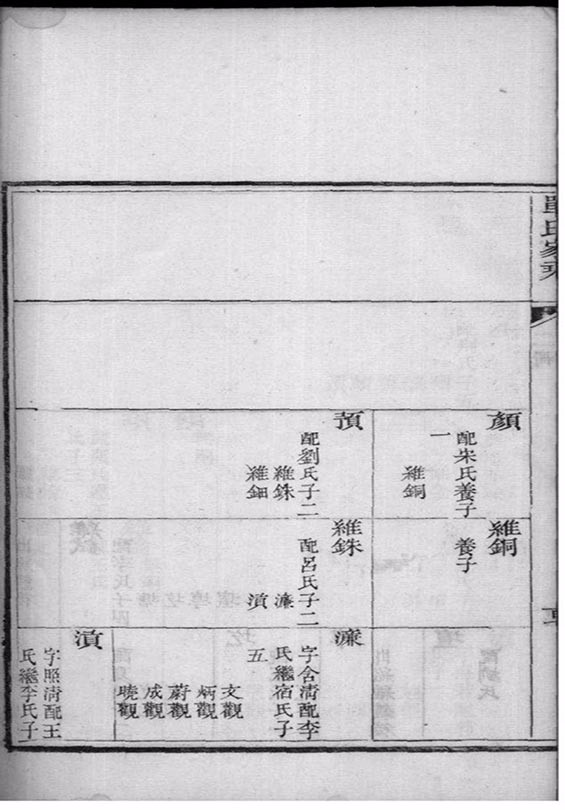 單氏家乘
顏
配宋氏養子
一
維銅
維銅
養子
頊
配劉氏子二
維銖
維鈿
維銖
配呂氏子二
濂
濱
濂
字含清配李
氏繼宿氏子
五
文觀
炳觀
蔚觀
成觀
曉觀
濱
字照清配王
氏繼李氏子